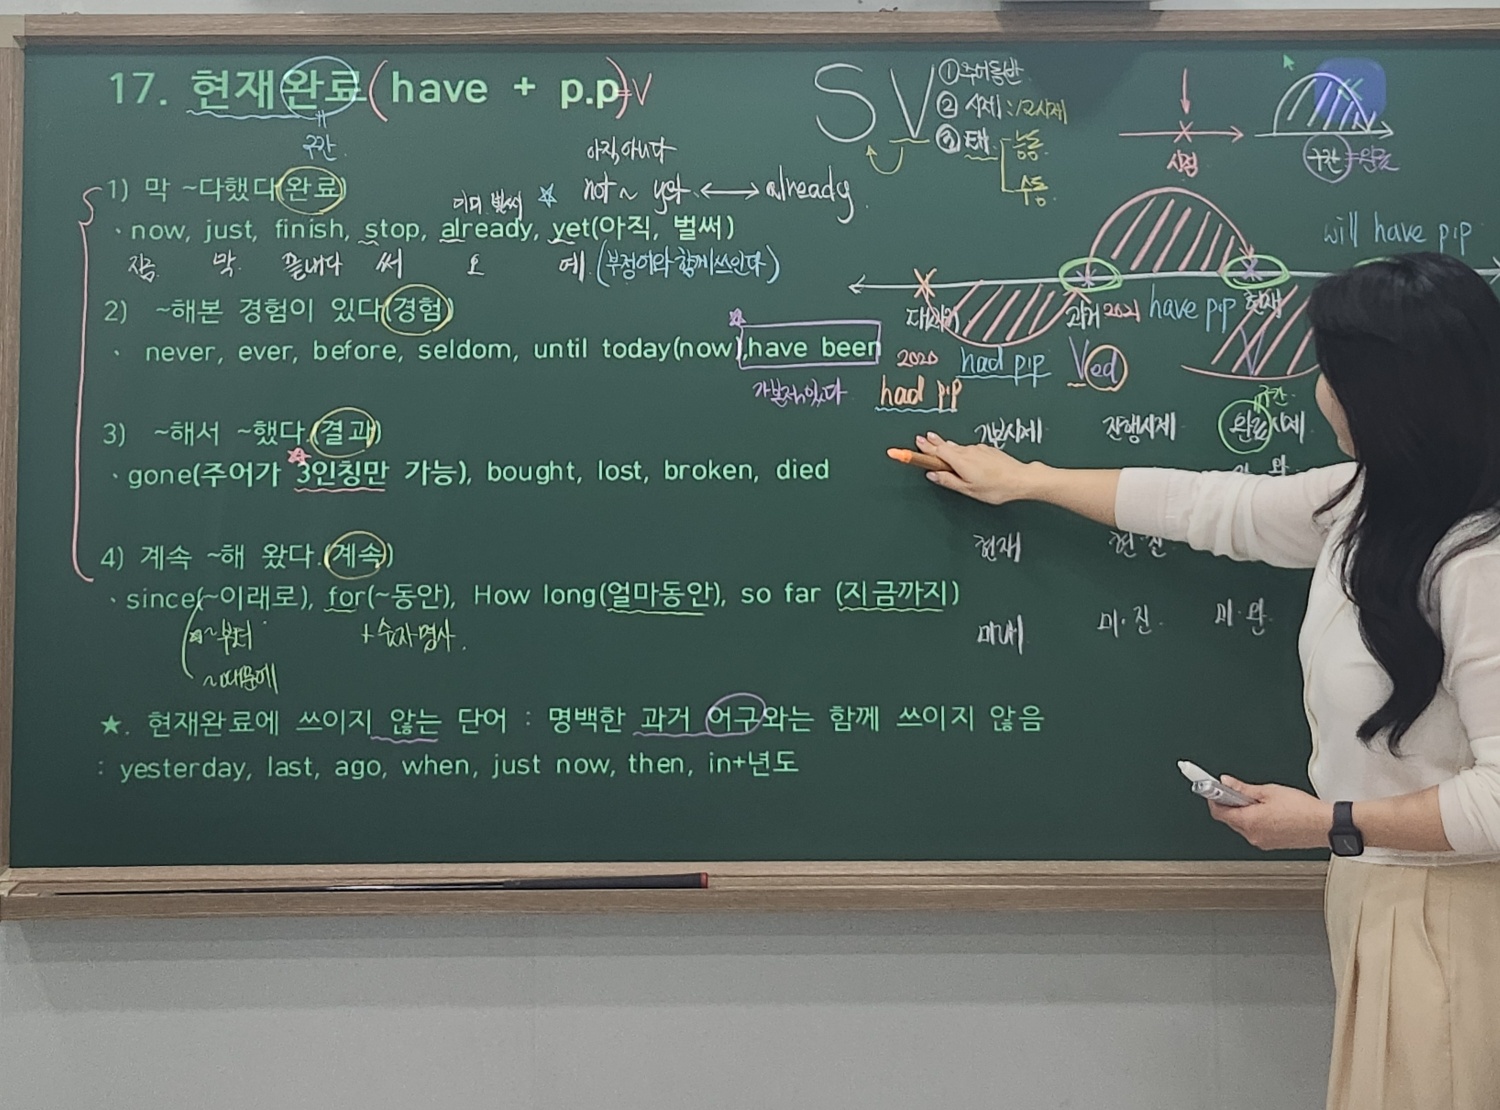 17. 현재완료(have + p.p)=V
구간
1) 막 ~다했다(완료)
아직, 아니다
이미 벌써 ☆ not ~ yet ↔ already
· now, just, finish, stop, already, yet(아직, 벌써)
지금 막 끝내다 써 오 예 (부정어와 함께 쓰인다)
2) ~해본 경험이 있다(경험)
· never, ever, before, seldom, until today(now),have been
가본적이 있다
3) ~해서 ~했다.(결과)
· gone(주어가 3인칭만 가능), bought, lost, broken, died
4) 계속 ~해 왔다.(계속)
· since(~이래로), for(~동안), How long(얼마동안), so far (지금까지)
~부터 +숫자명사.
~때문에
★. 현재완료에 쓰이지 않는 단어 : 명백한 과거 어구와는 함께 쓰이지 않음
: yesterday, last, ago, when, just now, then, in+년도
S V
① 주어동반
② 시제 : 12시제
③ 태 능동
수동
시점
구간 = 완료
will have p.p
대과거 과거 2021 have p.p 현재
2020 had p.p Ved
had p.p
구간
기본시제 진행시제 완료시제
현재 현·진
미래 미·진 미·완